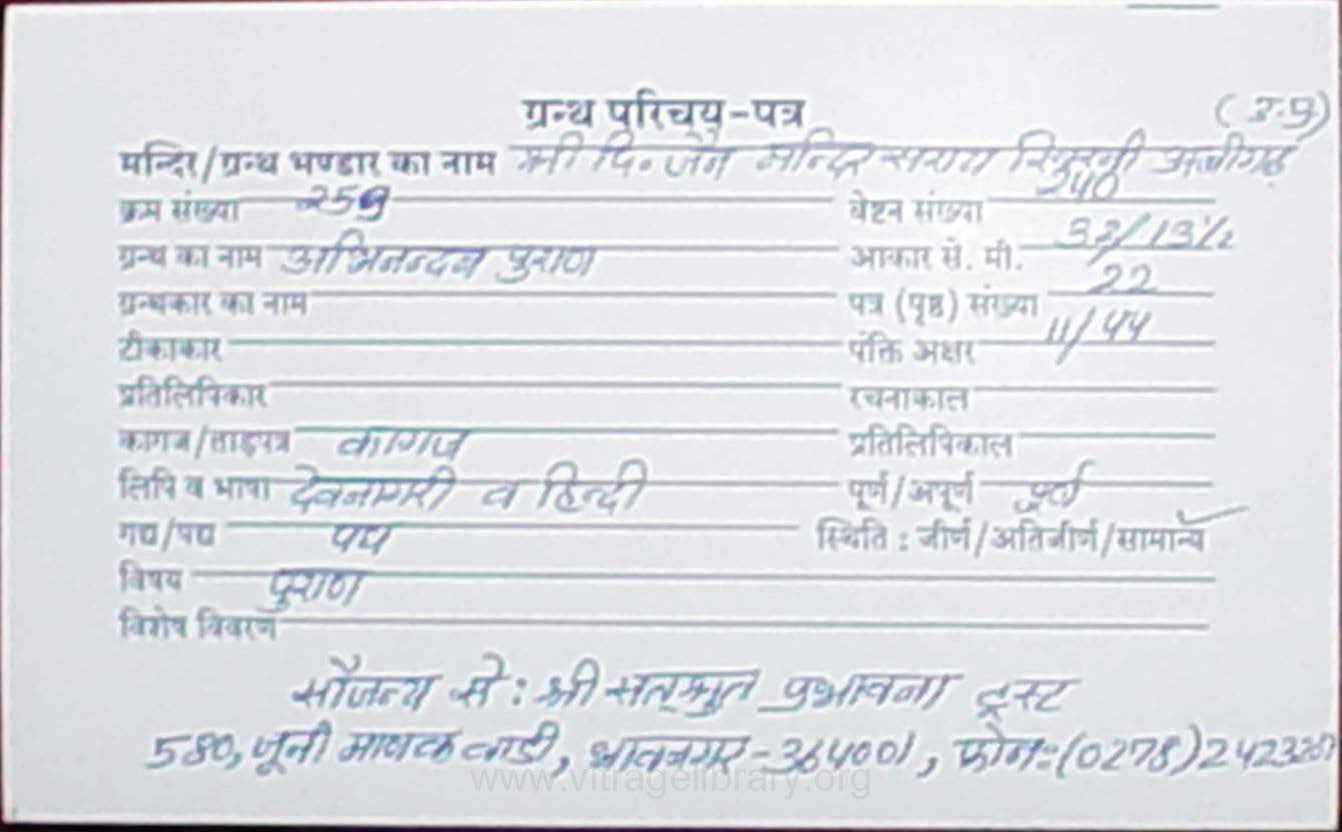 ग्रन्थ परिचय-पत्र
(उ.प्र)
मन्दिर/ग्रन्थ भण्डार का नाम श्री दि॰ जैन मन्दिर सराय अलीगढ़
क्रम संख्या 259 वेष्टन संख्या 240
ग्रन्थ का नाम अभिनन्दन पुराण आकार से. मी. 33/13½
ग्रन्थकार का नाम पत्र (पृष्ठ) संख्या 22
टीकाकार पंक्ति अक्षर 11/44
प्रतिलिपिकार रचनाकाल
कागज/ताड़पत्र कागज प्रतिलिपिकाल
लिपि व भाषा देवनागरी व हिन्दी पूर्ण/अपूर्ण पूर्ण
गद्य/पद्य पद्य स्थिति : जीर्ण/अतिजीर्ण/सामान्य
विषय पुराण
विशेष विवरण
सौजन्य से : श्री सत्श्रुत प्रभावना ट्रस्ट
580, जूनी माणेक वाडी, भावनगर - 364001, फोन:- (0278)
www.vitragelibrary.org